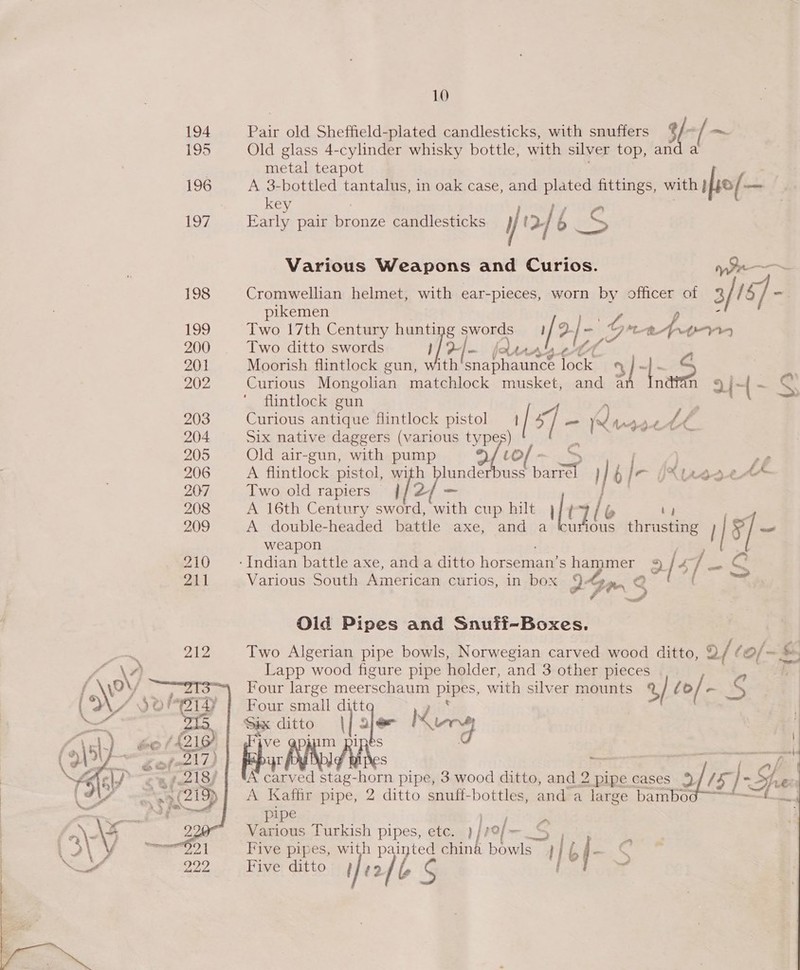 10
194 Pair old Sheffield-plated candlesticks, with snuffers 3/-/-
195 Old glass 4-cylinder whisky bottle, with silver top, and a
metal teapot
196 A 3-bottled tantalus, in oak case, and plated fittings, with 1/10/-
key
197 Early pair bronze candlesticks 1/12/6 S
Various Weapons and Curios.
198 Cromwellian helmet, with ear-pieces, worn by officer of 3/15/-
pikemen
199 Two 17th Century hunting swords 1/2/-
200 Two ditto swords 1/2/-
201 Moorish flintlock gun, with snaphaunce lock 2/-/- S
202 Curious Mongolian matchlock musket, and an Indian 2/-/- S
flintlock gun
203 Curious antique flintlock pistol 1/5/-
204 Six native daggers (various types)
205 Old air-gun, with pump 2/10/- S
206 A flintlock pistol, with blunderbuss barrel 1/6/-
207 Two old rapiers 1/2/-
208 A 16th Century sword, with cup hilt 1/17/6 "
209 A double-headed battle axe, and a curious thrusting 1/8/-
weapon
210 Indian battle axe, and a ditto horseman's hammer 2/5/- S
211 Various South American curios, in box
Old Pipes and Snuff-Boxes.
212 Two Algerian pipe bowls, Norwegian carved wood ditto, 2/10/- S
Lapp wood figure pipe holder, and 3 other pieces
213 Four large meerschaum pipes, with silver mounts 2/10/- S
214 Four small ditto
215 Six ditto
216 Five opium pipes
217 Four pipes
218 A carved stag-horn pipe, 3 wood ditto, and 2 pipe cases 2/15/-
219 A Kaffir pipe, 2 ditto snuff-bottles, and a large bamboo
pipe
220 Various Turkish pipes, etc. 1/10/- S
221 Five pipes, with painted china bowls 1/6/- S
222 Five ditto 1/12/6 S